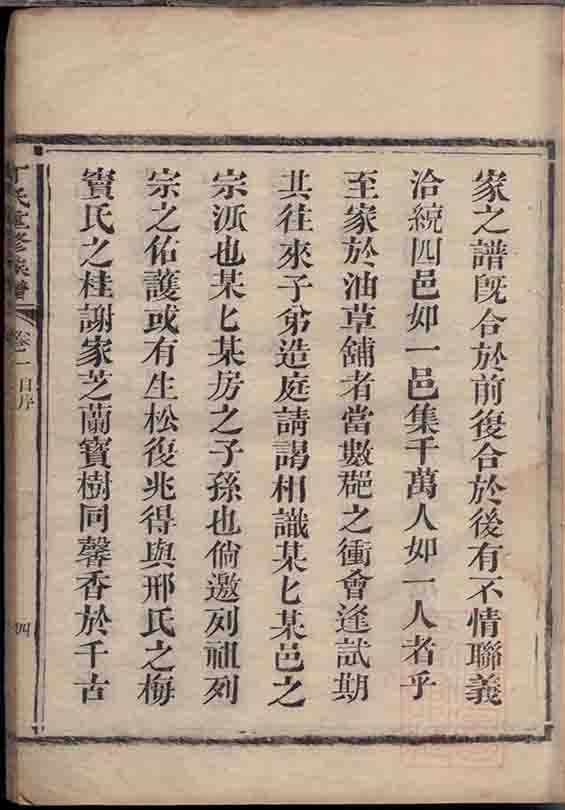 家之譜旣合於前復合於後有不情聯義
洽統四邑如一邑集千萬人如一人者乎
至家於油草舖者當數郡之衝會逢試期
共往來子弟造庭請謁相識某匕某邑之
宗派也某匕某房之子孫也倘邀列祖列
宗之佑護或有生松復兆得與邢氏之梅
竇氏之桂謝家芝蘭寶樹同馨香於千古
丁氏重修族譜
卷二 自序
四